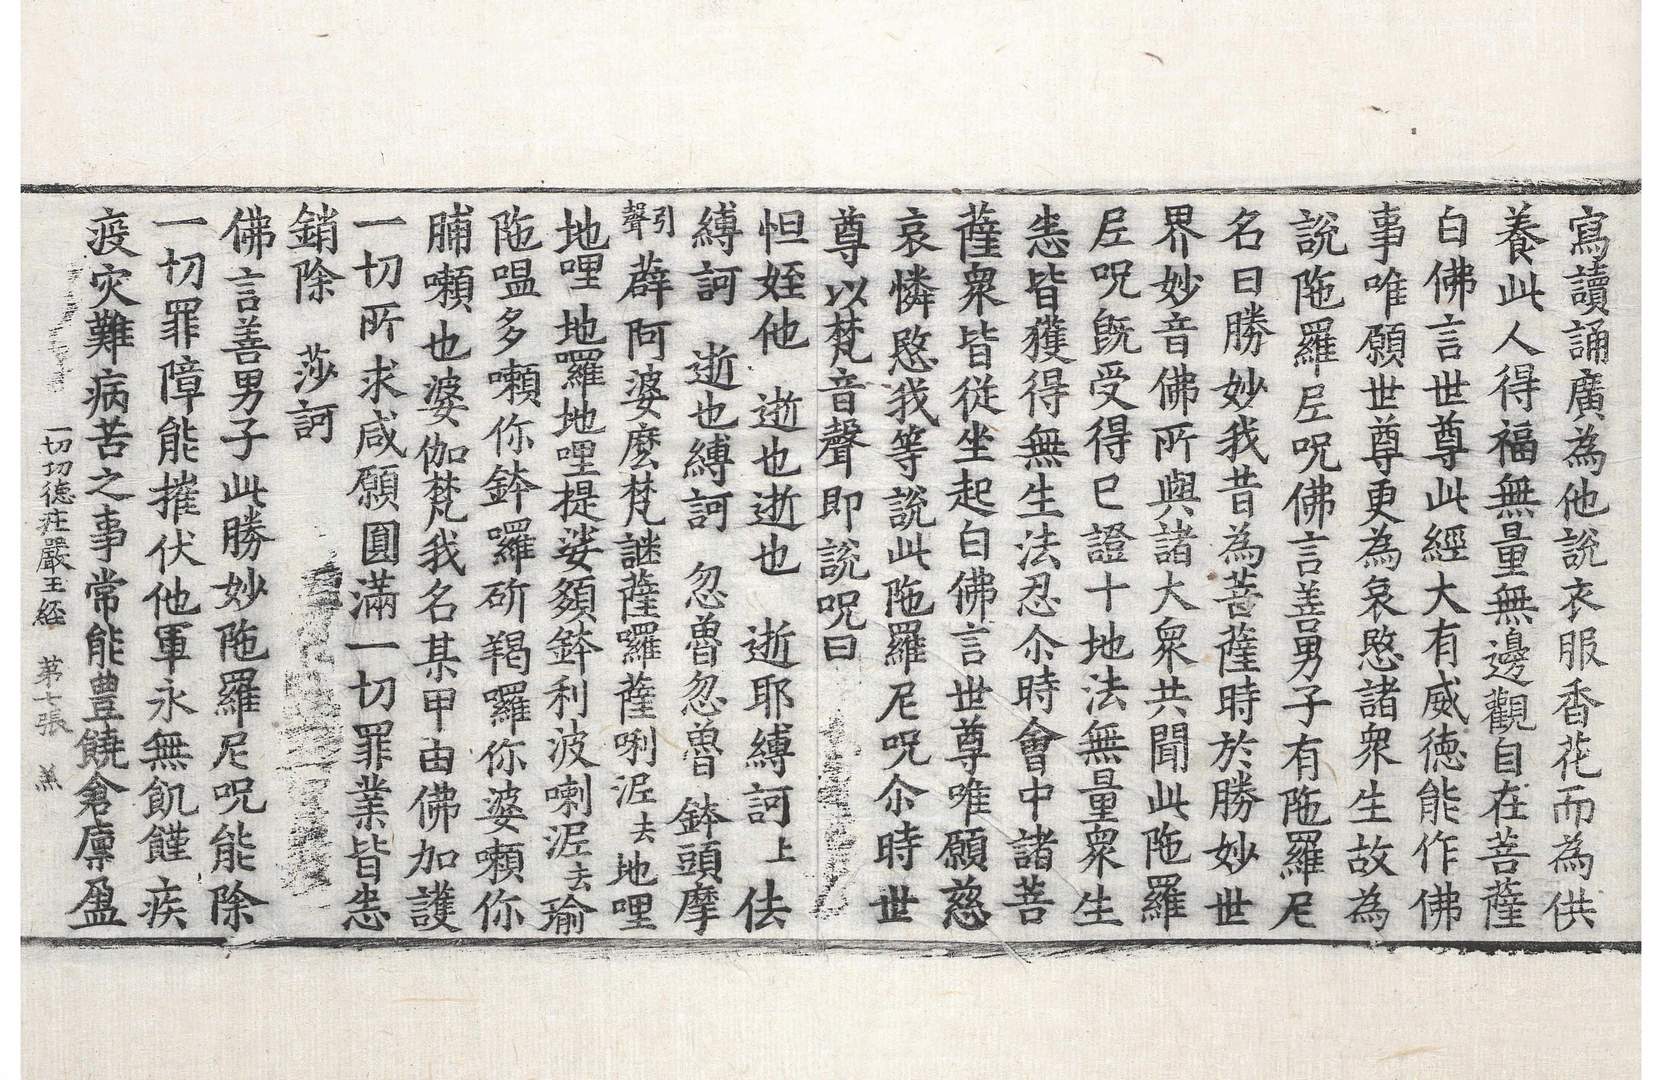 寫讀誦廣為他說衣服香花而為供
養此人得福無量無邊觀自在菩薩
白佛言世尊此經大有威德能作佛
事唯願世尊更為哀愍諸眾生故為
說陁羅尼呪佛言善男子有陁羅尼
名曰勝妙我昔為菩薩時於勝妙世
界妙音佛所與諸大衆共聞此陁羅
尼呪旣受得已證十地法無量衆生
悉皆獲得無生法忍尒時會中諸菩
薩衆皆從坐起白佛言世尊唯願慈
哀憐愍我等說此陁羅尼呪尒時世
尊以梵音聲即說呪曰
怛姪他 逝也逝也 逝耶縛訶上佉
縛訶 逝也縛訶 忽魯忽魯 鉢頭摩
引聲薜阿婆麼梵謎薩囉薩唎泥去地哩
地哩 地囉地哩提娑頞鉢利波喇泥去瑜
陁嗢多囇你鉢囉斫羯囉你婆囇你
脯囇也婆伽梵我名某甲由佛加護
一切所求咸願圓滿一切罪業皆悉
銷除 莎訶
佛言善男子此勝妙陁羅尼呪能除
一切罪障能摧伏他軍永無飢饉疾
疫灾難病苦之事常能豊饒倉廩盈
一切切德庄嚴王経 第七張 羔